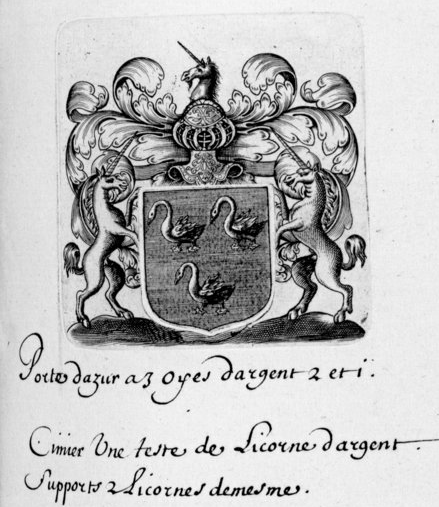 Porte dazur a 3 Oyes dargent 2 et 1.
Cimier Une teste de Licorne dargent.
Supports 2 Licornes demesme.